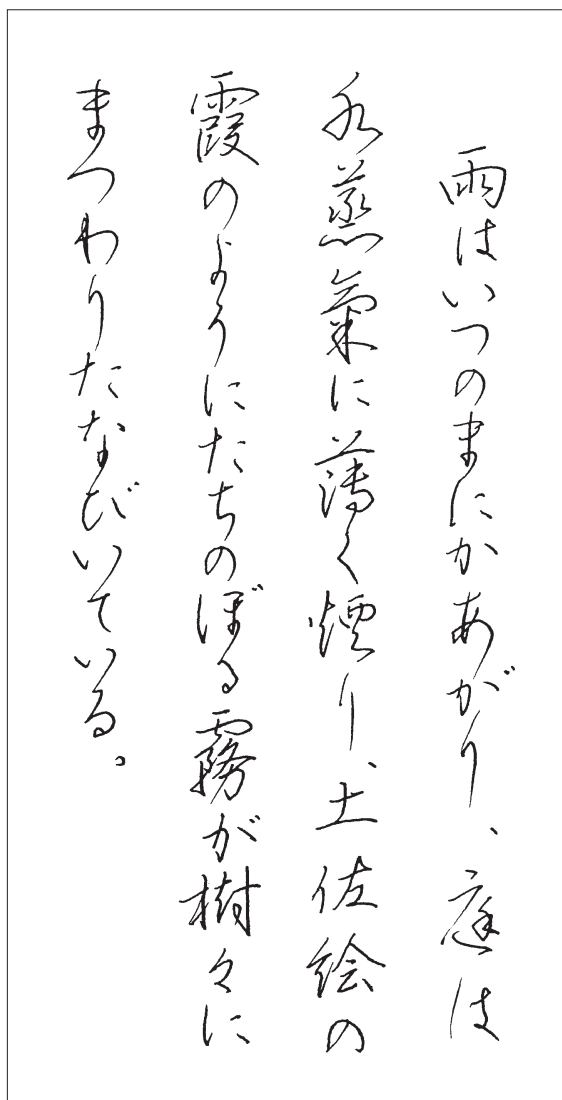 雨はいつのまにかあがり、庭は
水蒸氣に薄く煙り、土佐絵の
霞のようにたちのぼる霧が樹々に
まつわりたなびいている。